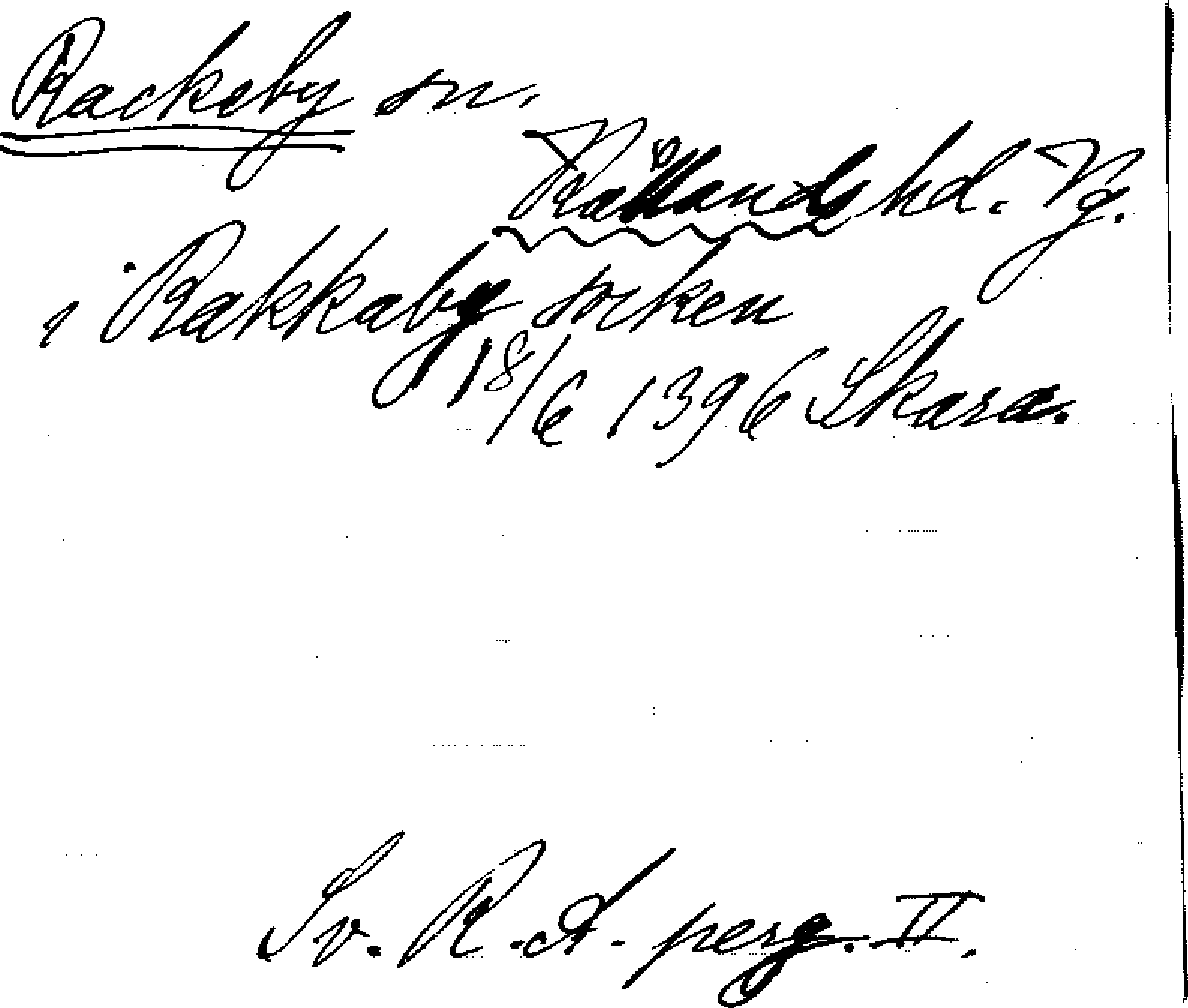 Rackeby sn.
Kållands hd. Vg.
i Rakkaby socken
18/6 1396 Skara.
Sv. R.A. perg. II.